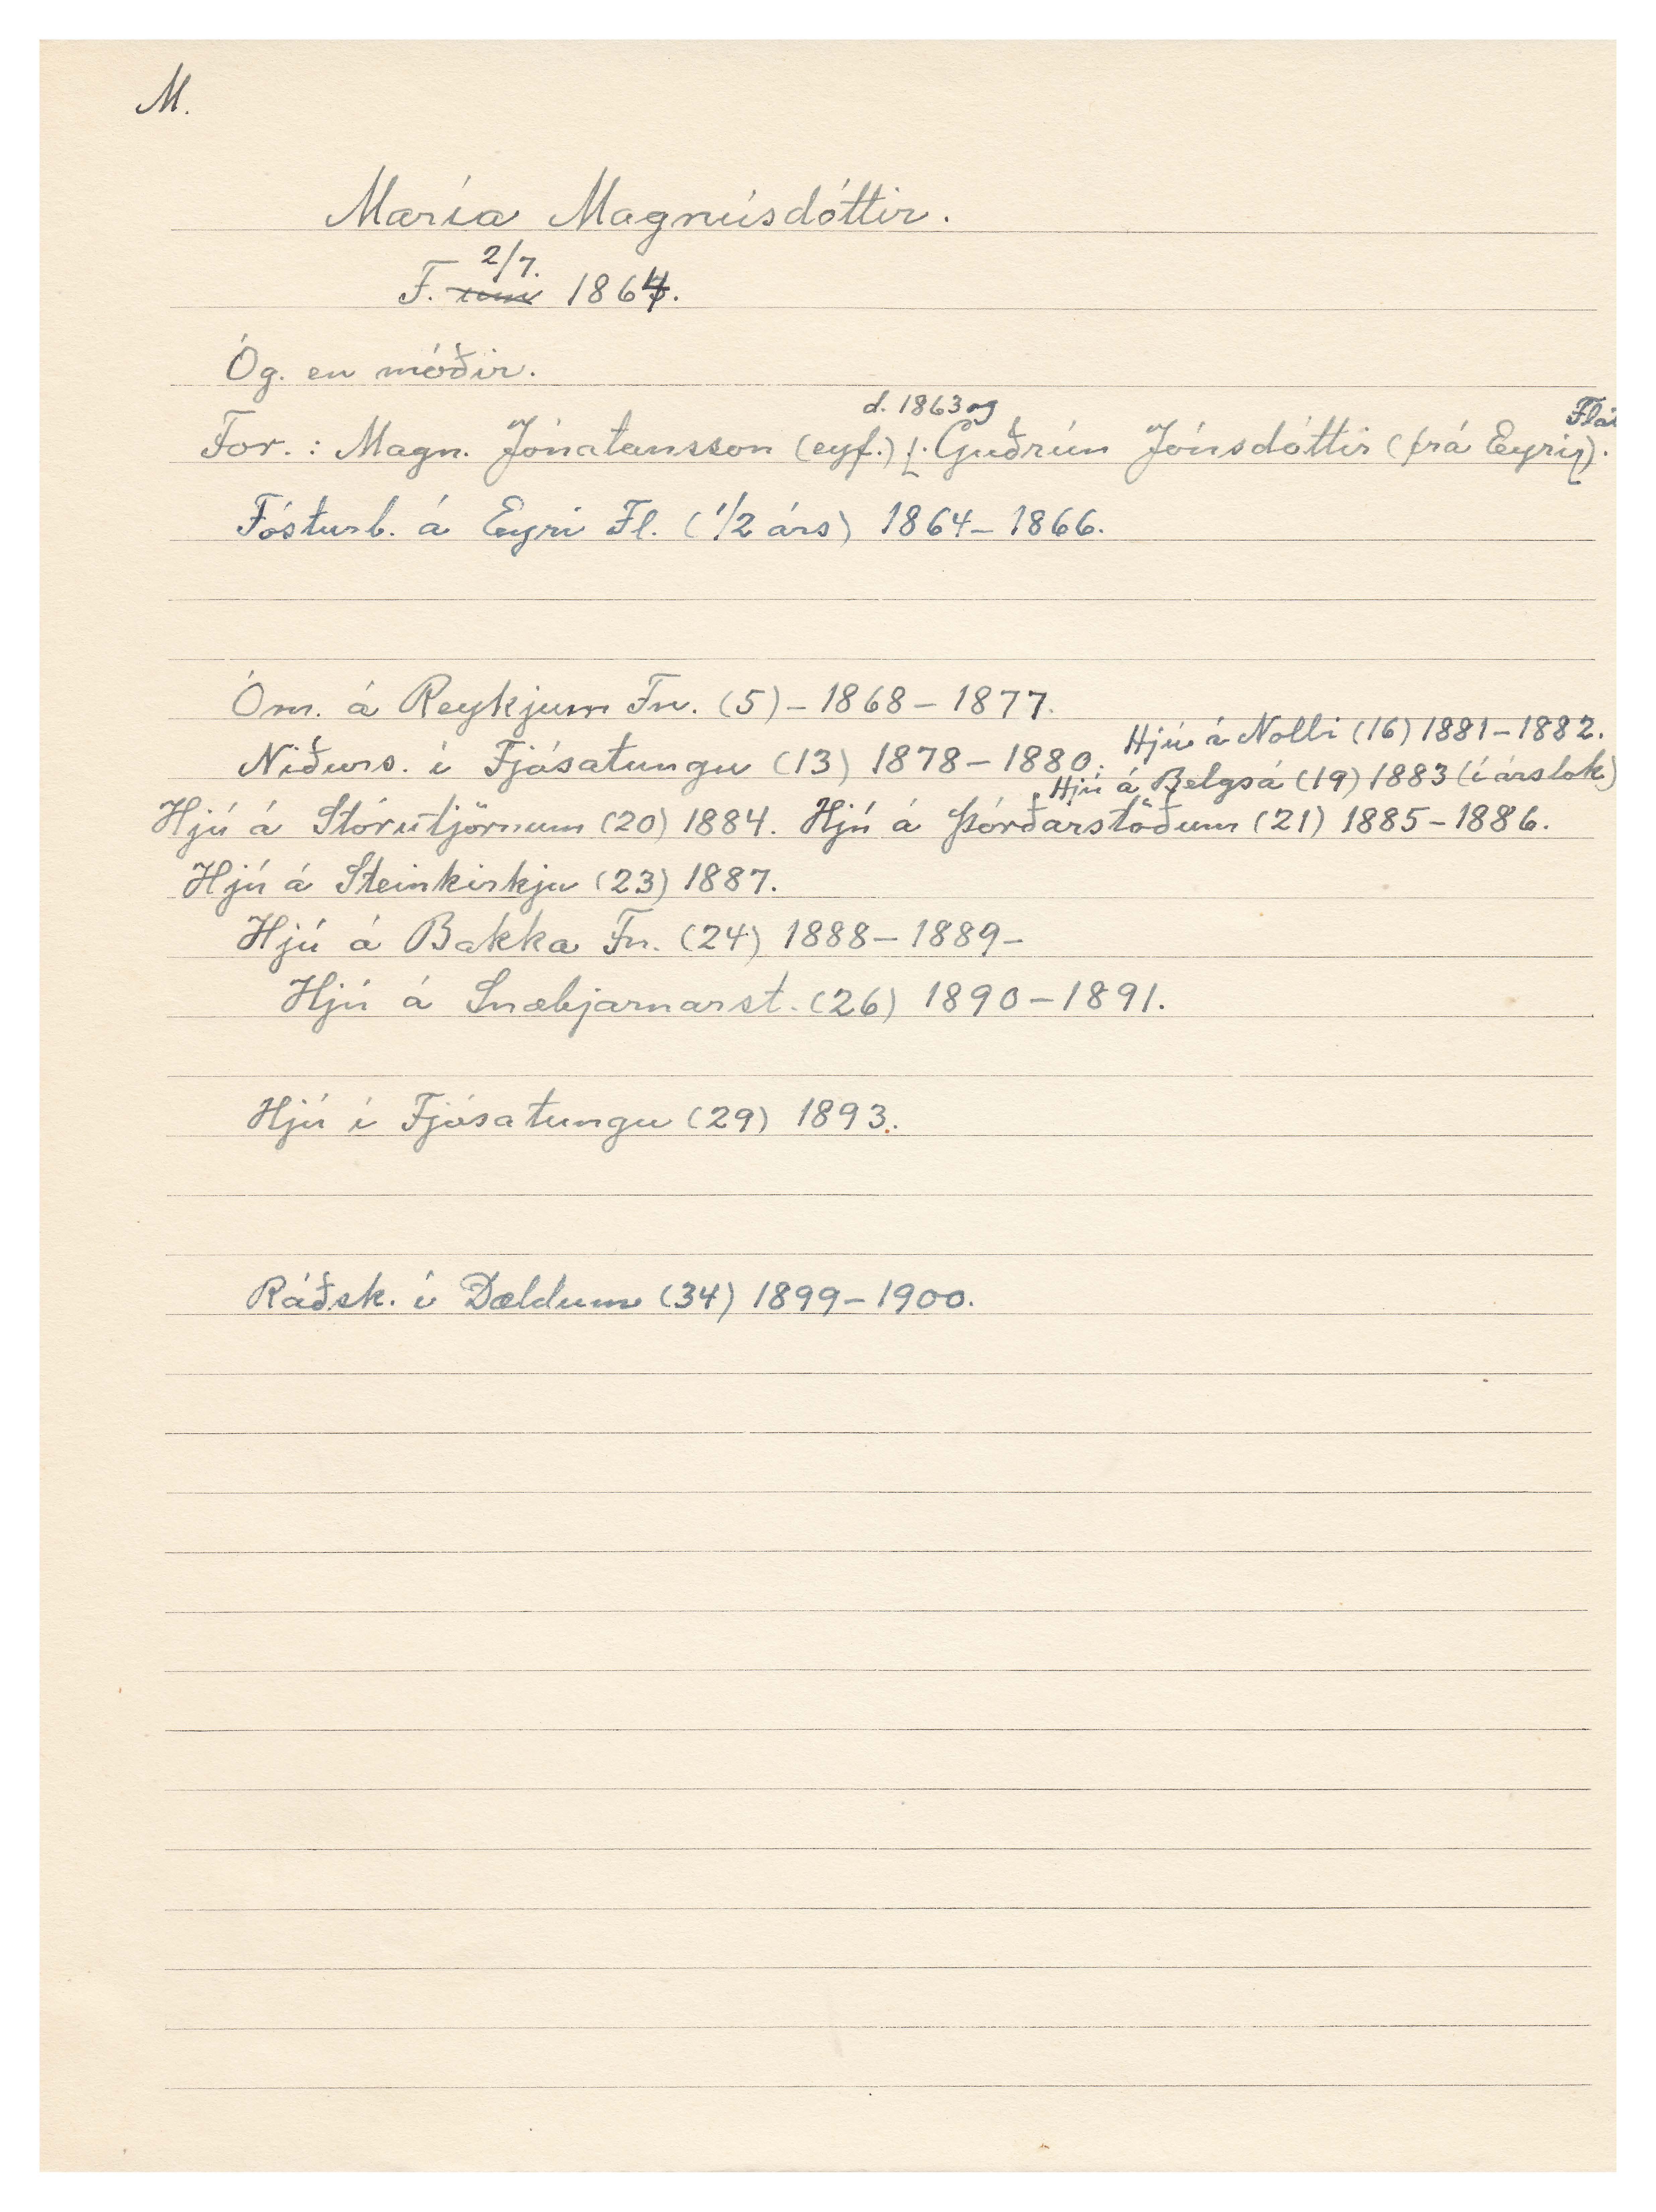 M.
María Magnúsdóttir.
2/7.
F. um 1864.
Óg. en móðir.
d. 1863 og
Flat
For.: Magn. Jónatansson (eyf.) Guðrún Jónsdóttir (frá Eyri).
Fósturb. á Eyri Fl. (1/2 árs) 1864-1866.
Óm. á Reykjum Fn. (5) - 1868-1877.
Hjú á Nolli (16) 1881-1882.
Niðurs. í Fjósatungu (13) 1878-1880.
Hjú á Belgsá (19) 1883 (í árslok)
Hjú á Stórutjörnum (20) 1884. Hjú á Þórðarstöðum (21) 1885-1886.
Hjú á Steinkirkju (23) 1887.
Hjú á Bakka Fn. (24) 1888-1889-
Hjú á Snæbjarnarst. (26) 1890-1891.
Hjú í Fjósatungu (29) 1893.
Ráðsk. í Dældum (34) 1899-1900.